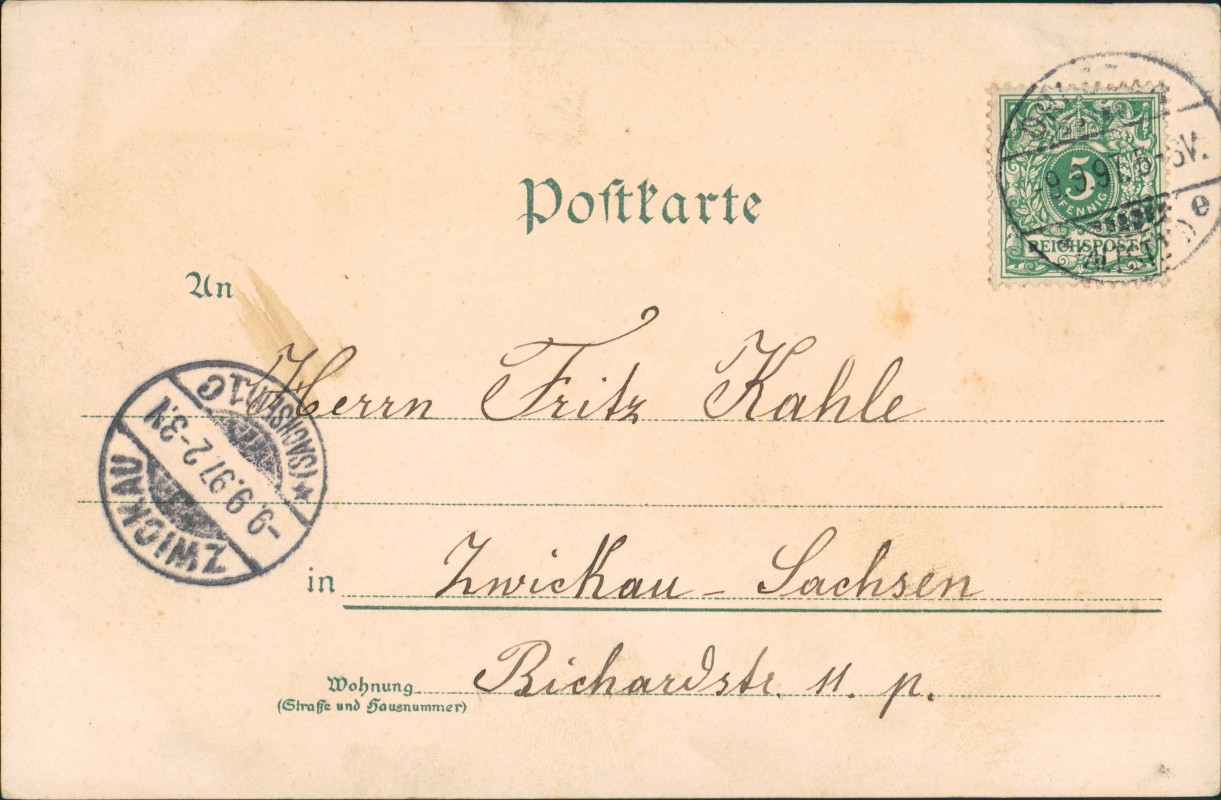 Postkarte
5
PFENNIG
REICHSPOST
9.97.
(ALTST.) e
An
Herrn Fritz Kahle
ZWICKAU
-9.9.97. 2-3.N
(SACHSEN) 1 C
in Zwickau - Sachsen
Richardstr. 11. p.
Wohnung
(Straße und Hausnummer)